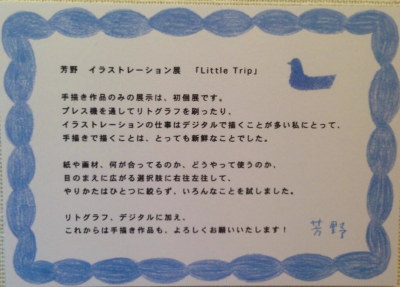 芳野　イラストレーション展　「Little Trip」
手描き作品のみの展示は、初個展です。
プレス機を通してリトグラフを刷ったり、
イラストレーションの仕事はデジタルで描くことが多い私にとって、
手描きで描くことは、とっても新鮮なことでした。
紙や画材、何が合ってるのか、どうやって使うのか、
目のまえに広がる選択肢に右往左往して、
やりかたはひとつに絞らず、いろんなことを試しました。
リトグラフ、デジタルに加え、
これからは手描き作品も、よろしくお願いいたします！
芳野